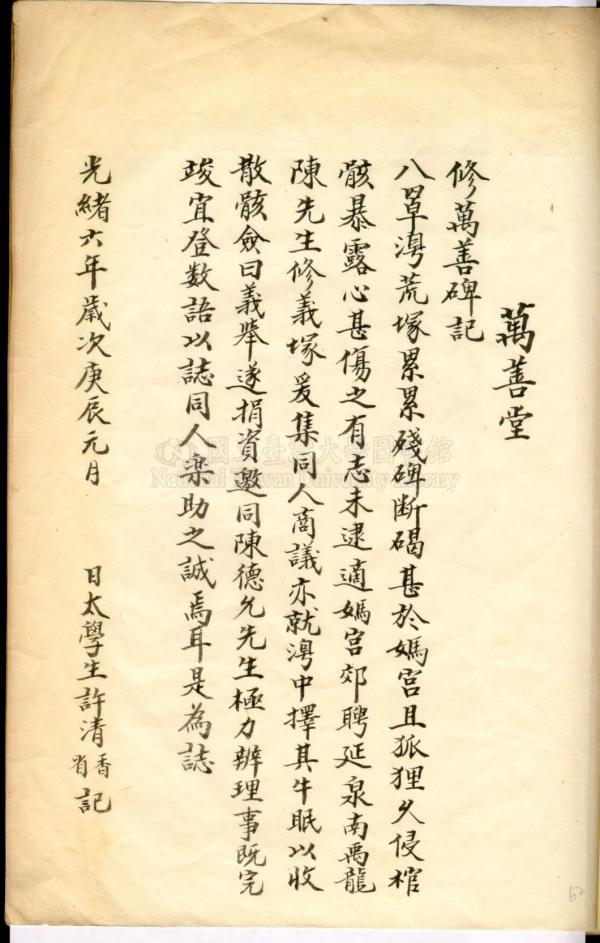 萬善堂
修萬善碑記
八罩灣荒塚累累殘碑断碣甚於媽宮且狐狸久侵棺
骸暴露心甚傷之有志未逮適媽宮郊聘延泉南禹龍
陳先生修義塚爰集同人商議亦就灣中擇其牛眠以收
散骸僉曰義舉遂捐資邀同陳德允先生極力辦理事既完
竣宜登数語以誌同人楽助之誠焉耳是為誌
光緒六年歲次庚辰元月 日太學生許清香省記
國立臺灣大學圖書館
National Taiwan University Library